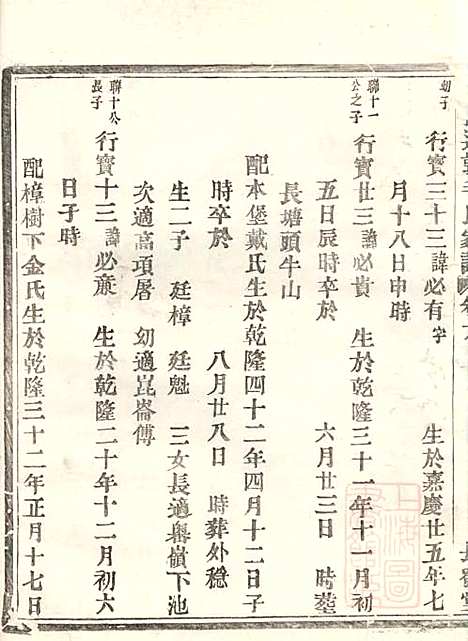 幼子 行寶三十三諱必有字 生於嘉慶廿五年七
月十八日申時
聯十一公之子 行寶廿三諱必貴 生於乾隆三十一年十一月初
五日辰時卒於 六月廿三日 時墓
長塘頭牛山
配本堡戴氏生於乾隆四十二年四月十二日子
時卒於 八月廿八日 時葬外穩
生二子 廷樟 廷魁 三女長適舉嶺下池
次適高項屠 幼適崑崙傅
聯十公長子 行寶十三諱必童 生於乾隆二十年十二月初六
日子時
配樟樹下金氏生於乾隆三十二年正月十七日